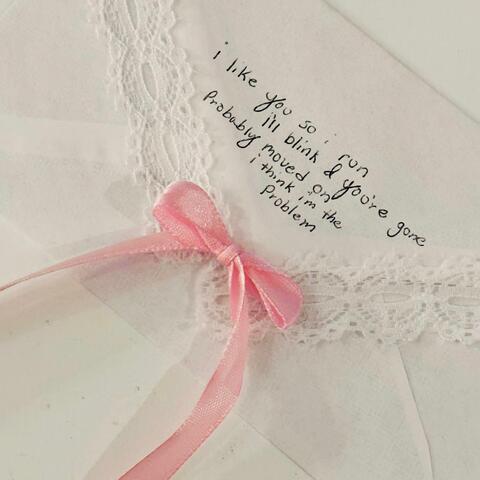 i like you so i run
i'll blink & you're gone
Probably moved on
i think i'm the
Problem